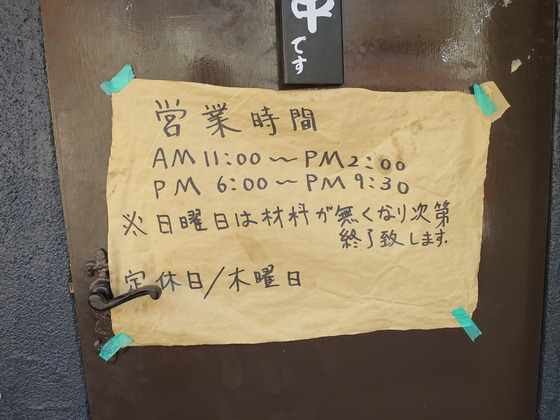 中
です
営業時間
AM 11:00 〜 PM 2:00
PM 6:00 〜 PM 9:30
※日曜日は材料が無くなり次第
終了致します.
定休日/木曜日